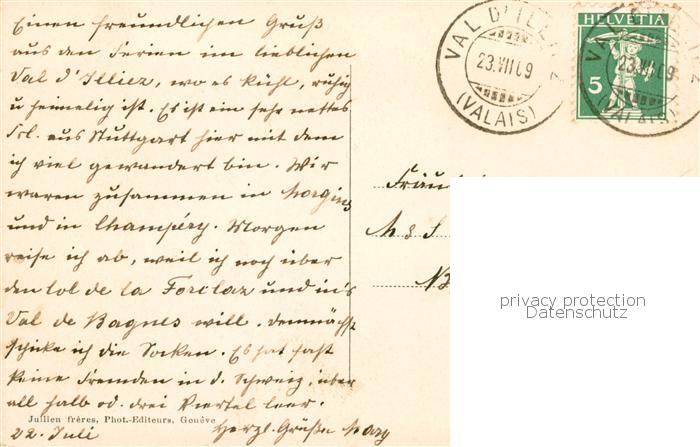 Einen freundlichen Gruß
aus den Ferien im lieblichen
Val d'Illiez, wo es kühl, ruhig
u heimelig ist. Es ist ein sehr nettes
Frl. aus Stuttgart hier mit dem
ich viel gewandert bin. Wir
waren zusammen in Morgins
und in Champéry. Morgen
reise ich ab, weil ich noch über
den Col de la Forclaz und in's
Val de Bagnes will. Demnächst
schicke ich die Socken. Es hat fast
keine Fremden in d. Schweiz, über
all halb od. drei Viertel leer.
Jullien frères, Phot.-Editeurs, Genève
22. Juli
Herzl. Grüße Mary
VAL D'ILLIEZ
23.VII.09
(VALAIS)
HELVETIA
5
VAL D'ILLIEZ
23.VII.09
(VALAIS)
privacy protection
Datenschutz